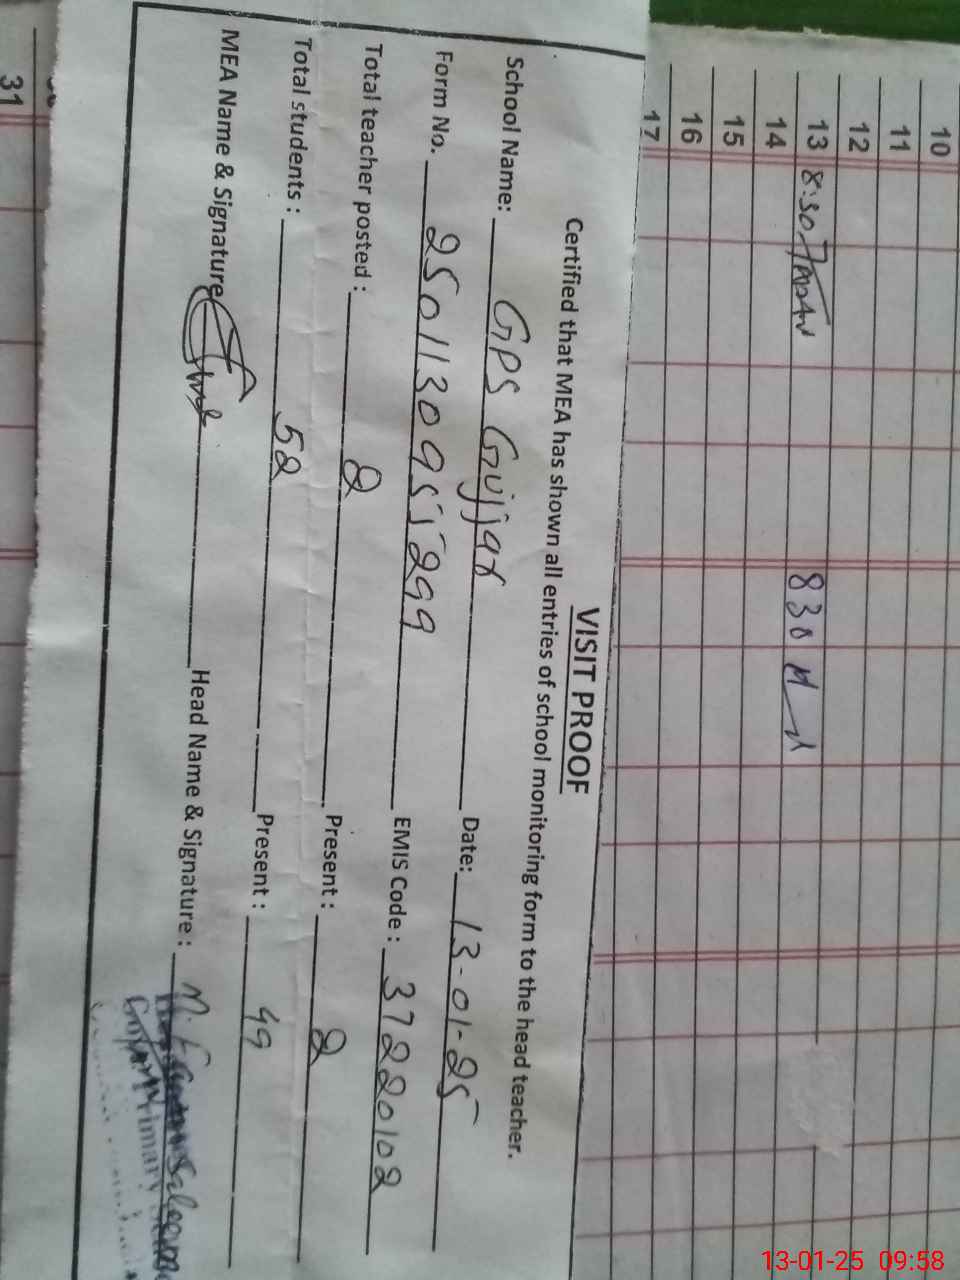 10
11
12
13 8:30 8 30
14
15
16
17
VISIT PROOF
Certified that MEA has shown all entries of school monitoring form to the head teacher.
School Name: GPS Gujjar Date: 13-01-25
Form No. 2501130955299 EMIS Code : 37220102
Total teacher posted : 2 Present : 2
Total students : 52 Present : 49
MEA Name & Signature Head Name & Signature : Saleem
Primary
31
13-01-25 09:58